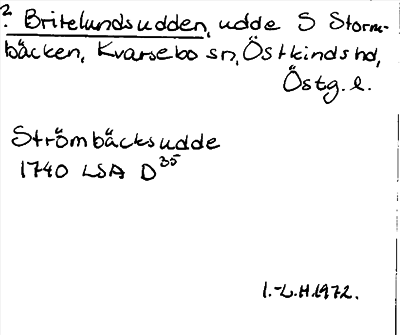 ? Britelundsudden, udde S Storm-
bäcken, Kvarsebo sn, Östkinds hd,
Östg.l.
Strömbäcksudde
1740 LSA D35
I.-L.H.1972.